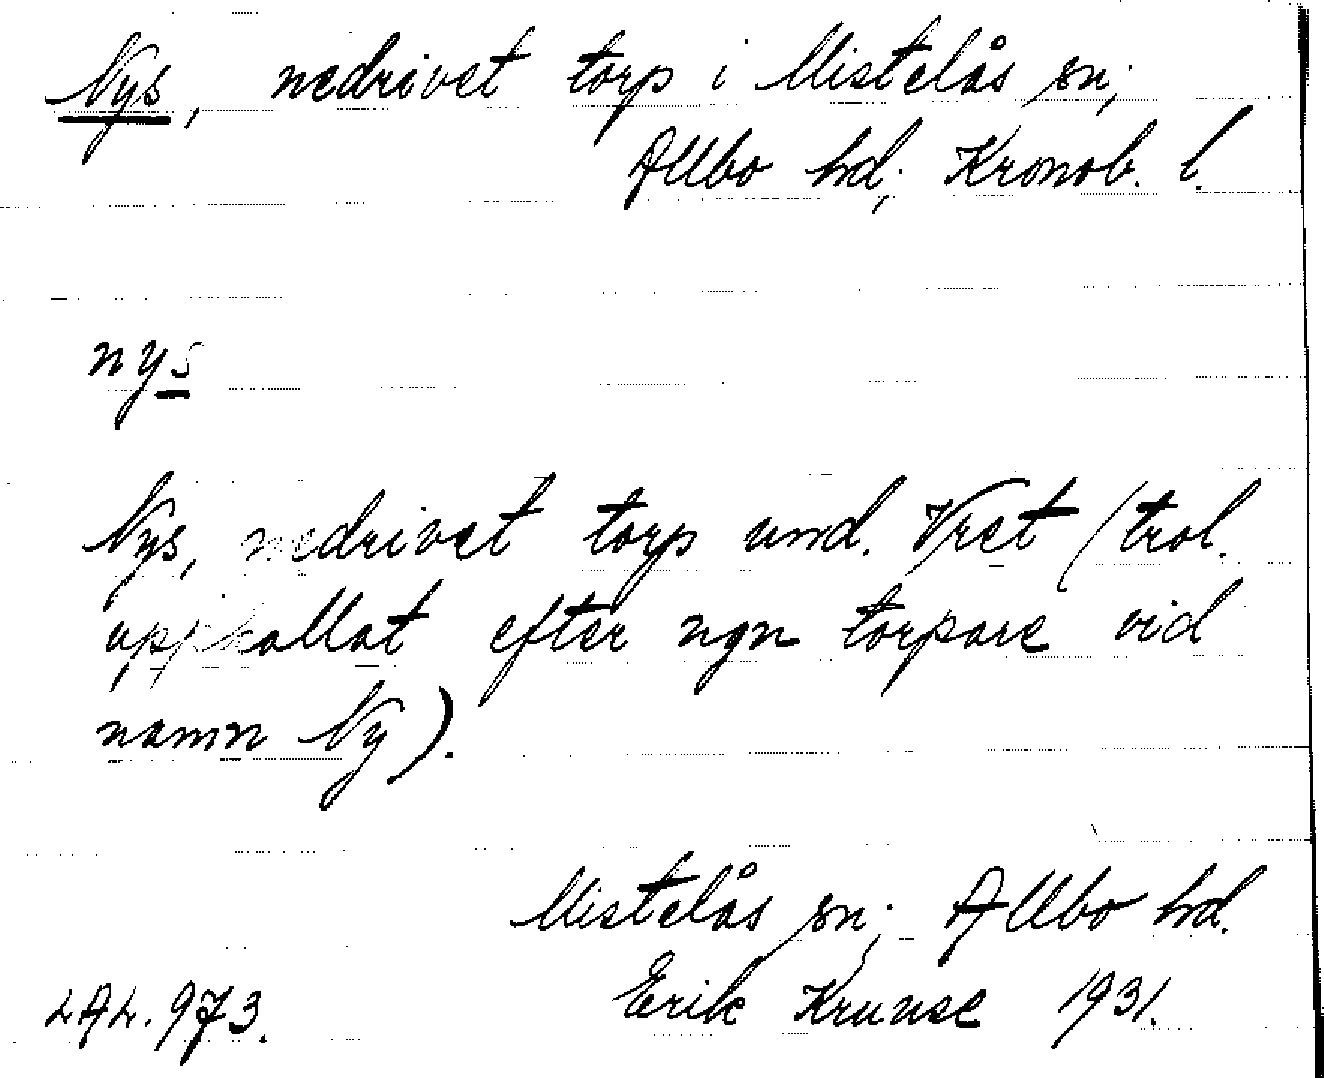 Nys, nedrivet torp i Mistelås sn;
Allbo hd; Kronob. l.
nys
Nys, nedrivet torp und. Vret (trol.
uppkallat efter ngn torpare vid
namn Ny).
Mistelås sn; Allbo hd.
LAL. 973. Erik Kruuse 1931.